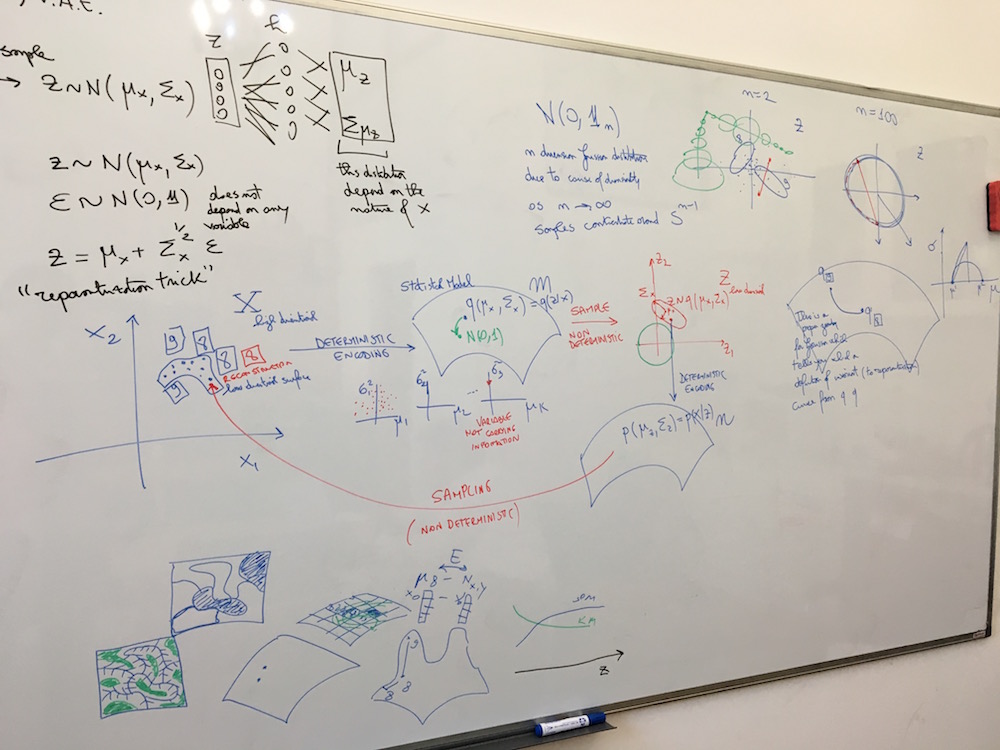 V.A.E.
sample
→ Z ~ N(μx, Σx)
z
h
μz
Σμz
this distribution
depend on the
nature of X
z ~ N(μx, Σx)
ε ~ N(0, 1)
does not
depend on any
variable
z = μx + Σx^1/2 ε
"reparametrization trick"
N(0, 1n)
n dimension gaussian distribution
due to curse of dimensionality
as n → ∞
samples concentrate around S^n-1
n=2
z
n=100
z
X
high dimensional
x2
x1
9
8
8
8
9
RECONSTRUCTION
low dimensional surface
DETERMINISTIC
ENCODING
Statistical Model
M
q(μx, Σx) = q(z|x)
N(0,1)
σ1²
μ1
σ2
μ2
...
μk
VARIABLE
NOT CARRYING
INFORMATION
SAMPLE
NON
DETERMINISTIC
z2
z1
Σx
Z
low dimensional
z ~ q(μx, Σx)
DETERMINISTIC
ENCODING
p(μz, Σz) = p(x|z)
M
SAMPLING
(NON DETERMINISTIC)
q
q
σ
μ
There is a
tells you which
curve from q q
E
μ8 - Nx,y
x0
9
8
8
KM
z